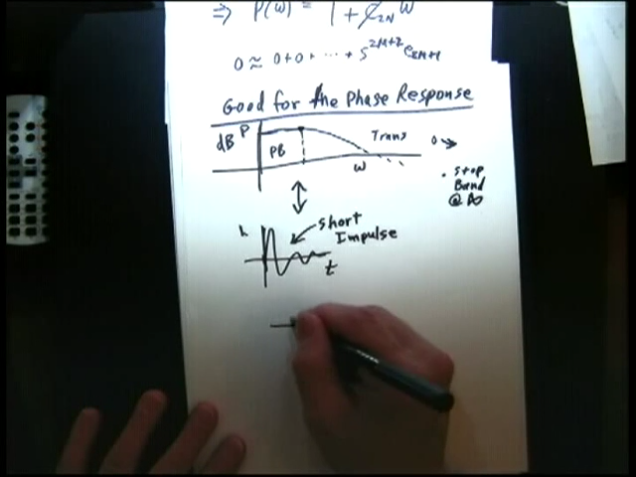 ⇒ P(ω) = 1 + ω
0 ≈ 0+0+ ⋯ + S^2N+2
Good for the Phase Response
dB P
PB
Trans
ω
0 →
• Stop
Band
@ ∞
h
Short
Impulse
t